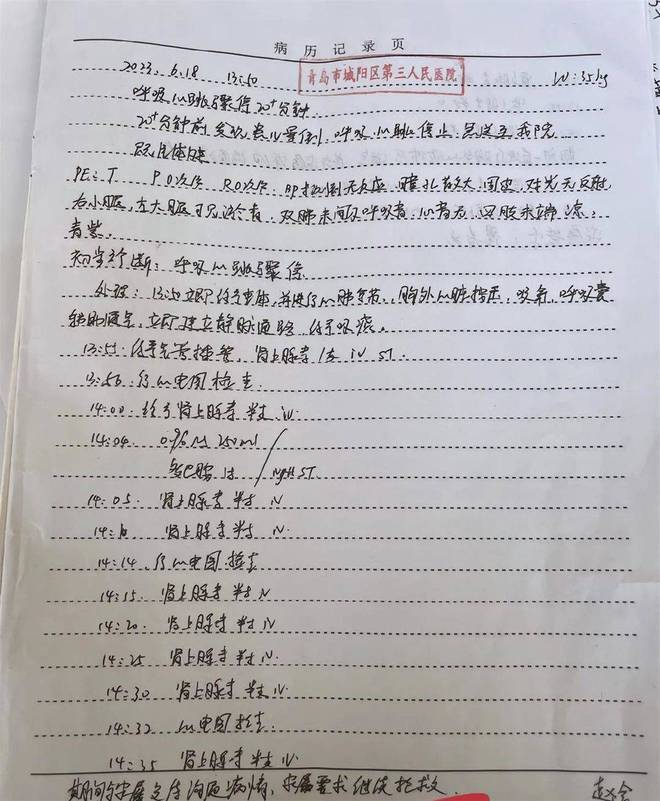 病历记录页
2023.6.18 13:50 青岛市城阳区第三人民医院 W:35kg
呼吸心跳骤停20⁺分钟
20⁺分钟前发现患儿晕倒,呼吸心跳停止,急送至我院
PE:T P 0次/分 R 0次/分 BP 测不到 无反应,瞳孔散大,固定,对光无反射
右小腿,左大腿可见淤青,双肺未闻及呼吸音,心音无,四肢末端凉,
青紫.
初步诊断:呼吸心跳骤停
处理:立即 并进行心肺复苏,胸外心脏按压,吸氧,呼吸囊
辅助通气,立即建立静脉通路,
13:51 气管插管,肾上腺素 1支 iv ST.
13:56 行心电图检查.
14:00 给予肾上腺素 半支 iv.
14:04 0.9% NS 250ml
多巴胺 / ivgtt ST.
14:05 肾上腺素 半支 iv
14:10 肾上腺素 半支 iv.
14:14 行心电图检查
14:15 肾上腺素 半支 iv
14:20 肾上腺素 半支 iv
14:25 肾上腺素 半支 iv.
14:30 肾上腺素 半支 iv.
14:32 心电图检查.
14:35 肾上腺素 半支 iv.
期间与家属交待沟通病情,家属要求继续抢救.